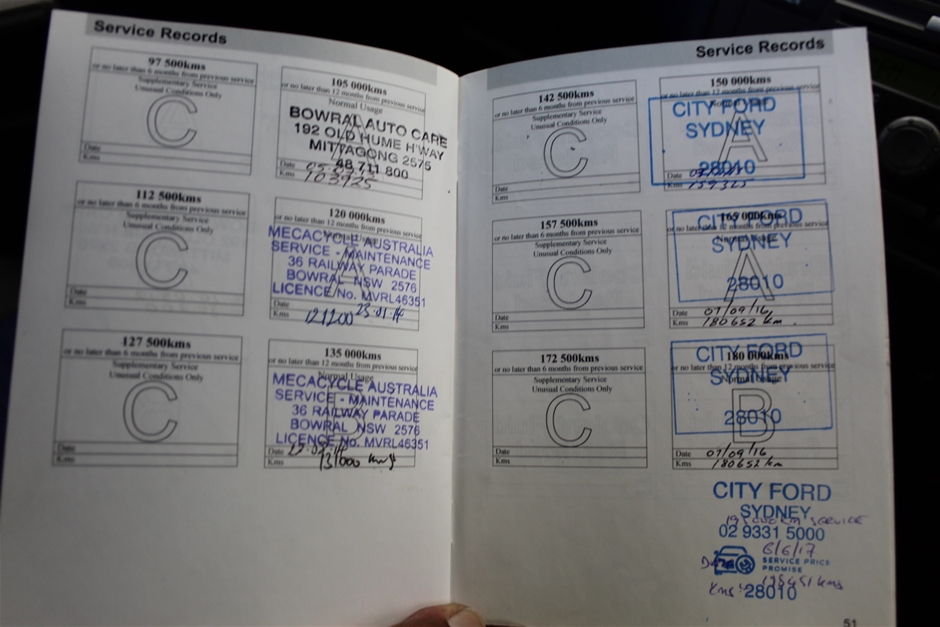 Service Records
97 500kms
or no later than 6 months from previous service
Supplementary Service
Unusual Conditions Only
C
Date
Kms
105 000kms
or no later than 12 months from previous service
Normal Usage
BOWRAL AUTO CARE
192 OLD HUME H'WAY
MITTAGONG 2575
48 711 800
Date
Kms 103925
112 500kms
or no later than 6 months from previous service
Supplementary Service
Unusual Conditions Only
C
Date
Kms
120 000kms
or no later than 12 months from previous service
MECACYCLE AUSTRALIA
SERVICE - MAINTENANCE
36 RAILWAY PARADE
BOWRAL NSW 2576
LICENCE No. MVRL46351
Date 23-01-14
Kms 121200
127 500kms
or no later than 6 months from previous service
Supplementary Service
Unusual Conditions Only
C
Date
Kms
135 000kms
or no later than 12 months from previous service
Normal Usage
MECACYCLE AUSTRALIA
SERVICE - MAINTENANCE
36 RAILWAY PARADE
BOWRAL NSW 2576
LICENCE No. MVRL46351
Date
Kms 131000 kms
Service Records
142 500kms
or no later than 6 months from previous service
Supplementary Service
Unusual Conditions Only
C
Date
Kms
150 000kms
or no later than 12 months from previous service
CITY FORD
SYDNEY
A
28010
Date
Kms 159325
157 500kms
or no later than 6 months from previous service
Supplementary Service
Unusual Conditions Only
C
Date
Kms
165 000kms
or no later than 12 months from previous service
CITY FORD
SYDNEY
A
28010
Date 07/09/16
Kms 180652 km
172 500kms
or no later than 6 months from previous service
Supplementary Service
Unusual Conditions Only
C
Date
Kms
180 000kms
or no later than 12 months from previous service
CITY FORD
SYDNEY
Normal Usage
B
28010
Date 07/09/16
Kms 180652 km
CITY FORD
SYDNEY
195000KM SERVICE
02 9331 5000
6/6/17
SERVICE PRICE
PROMISE
28010
51